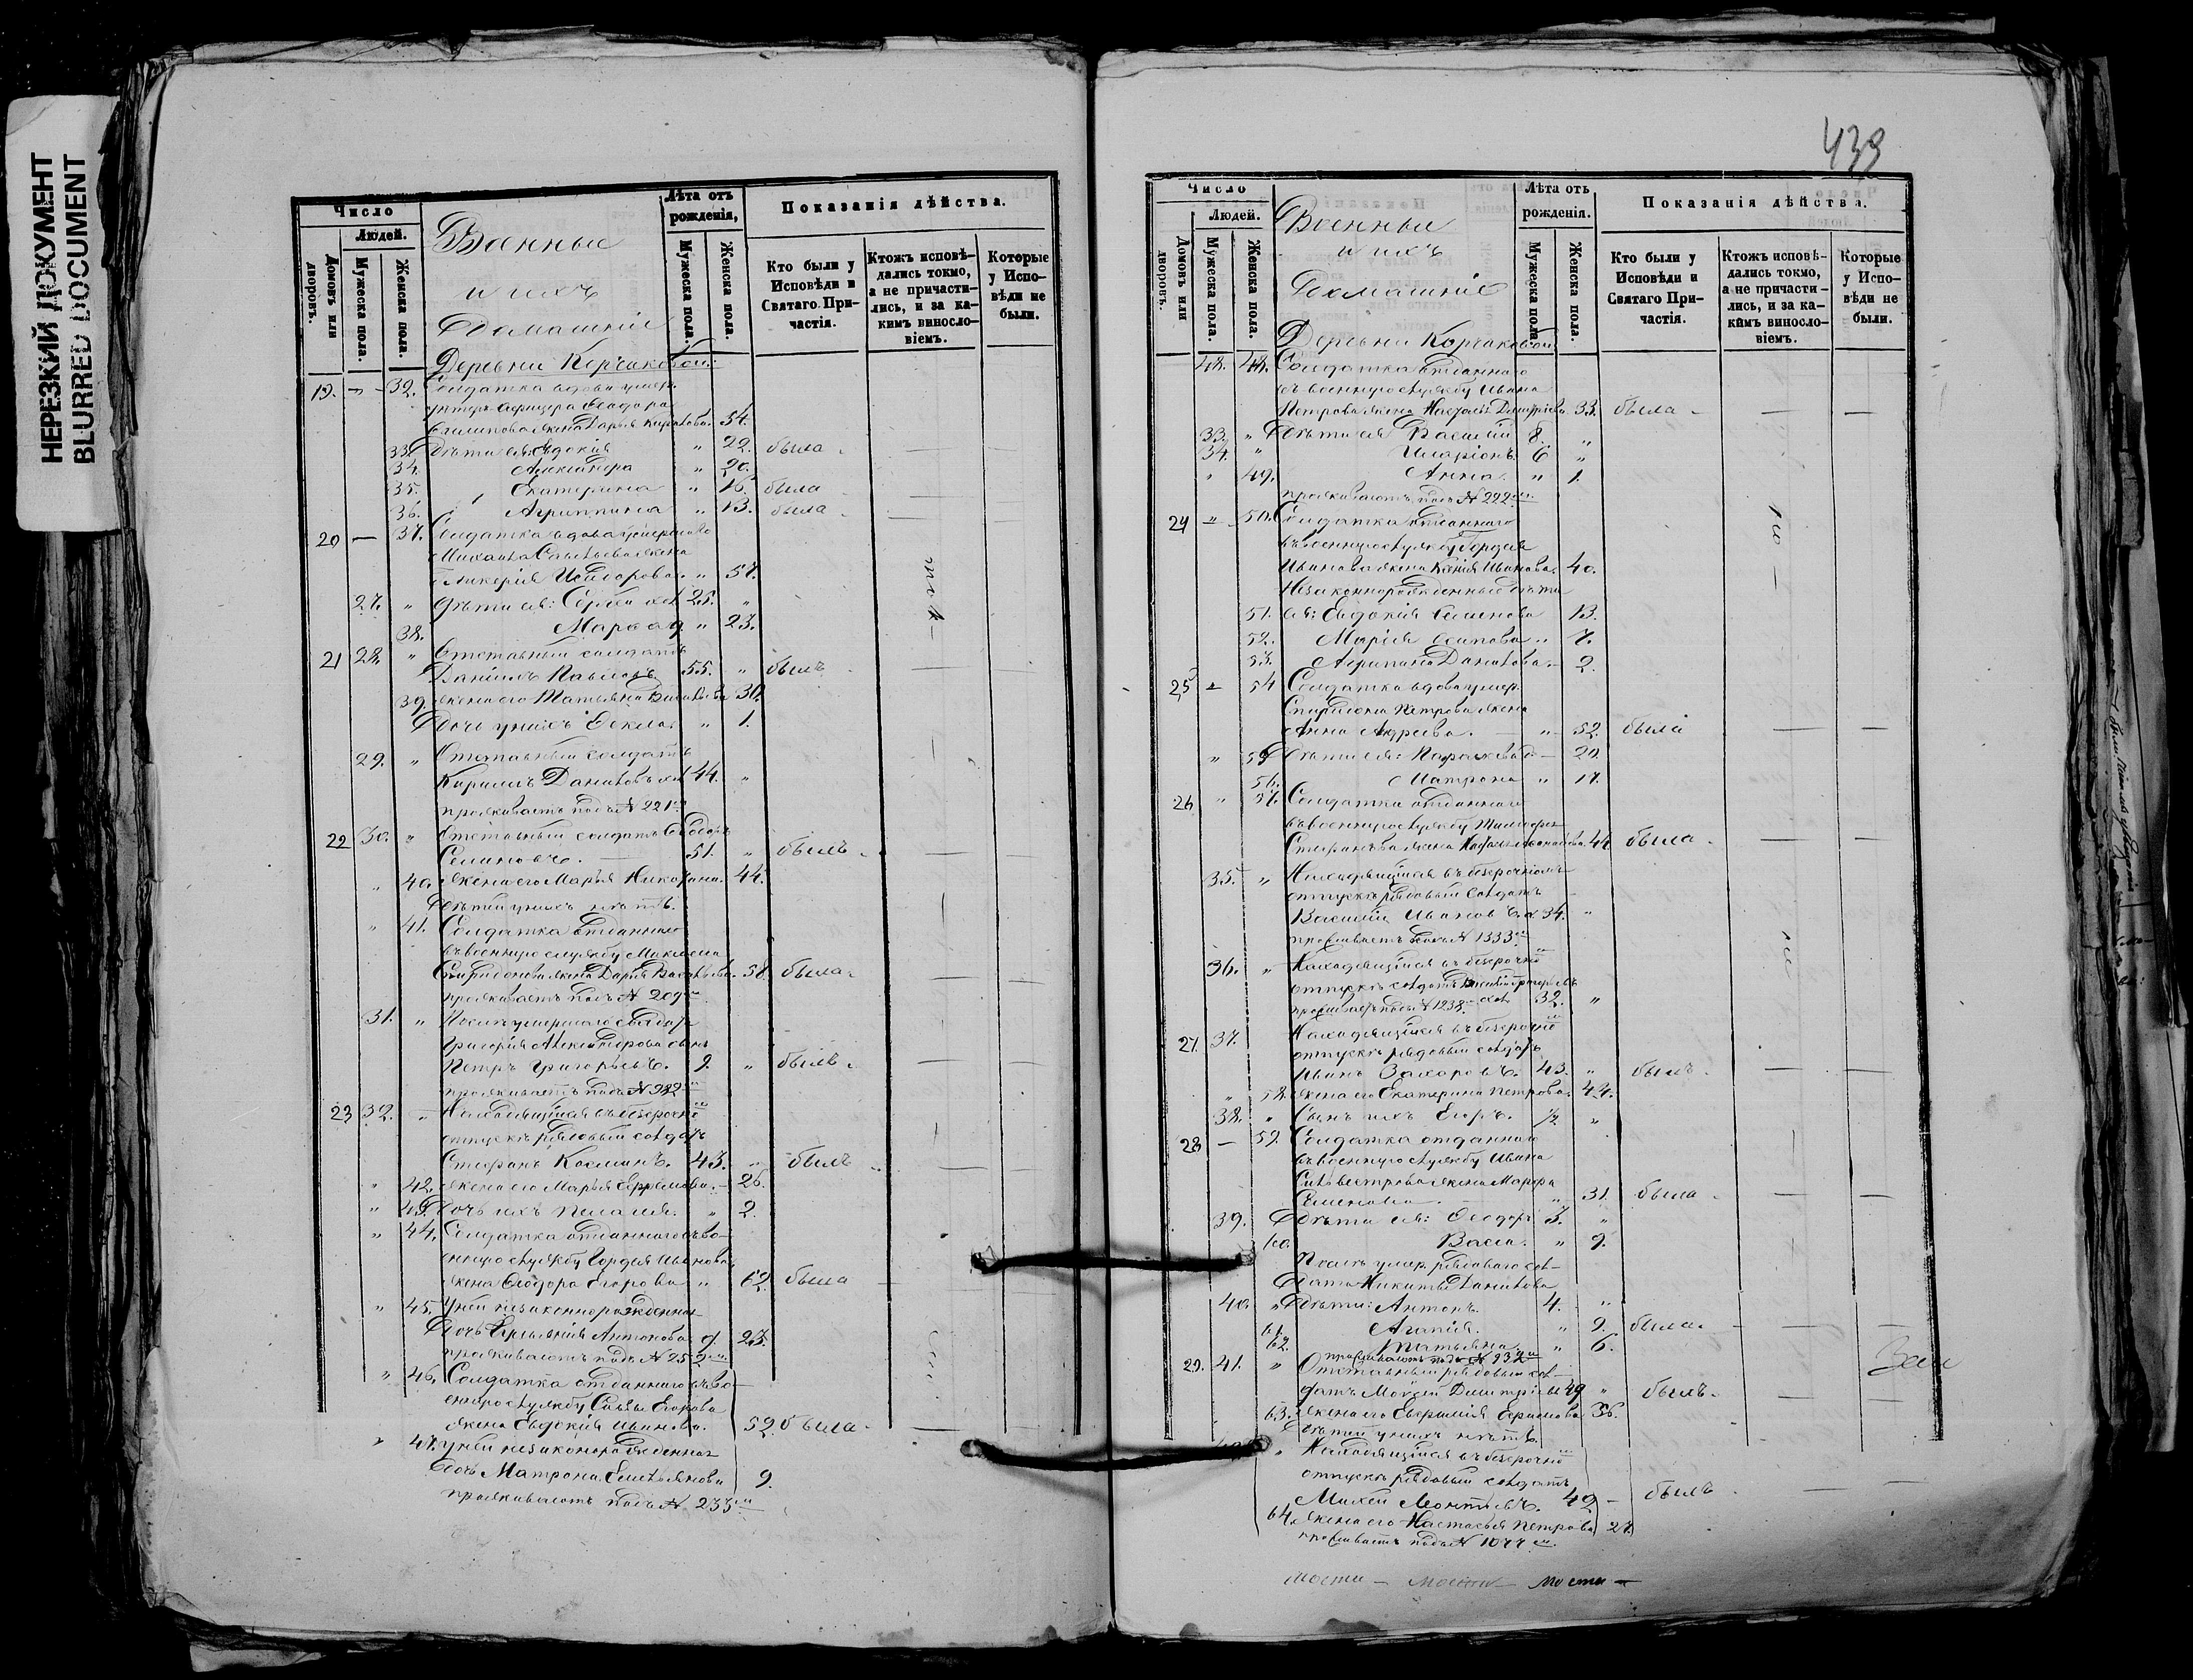 НЕРЕЗКИЙ ДОКУМЕНТ
BLURRED DOCUMENT
Число
Людей.
Домовъ или дворовъ.
Мужеска пола.
Женска пола.
Военныи
и ихъ
Домашніе
Лѣта отъ рожденія,
Мужеска пола.
Женска пола.
Показанія дѣйства.
Кто были у Исповѣди и Святаго Причастія.
Ктожъ исповѣдались токмо, а не причастились, и за какимъ винословіемъ.
Которые у Исповѣди не были.
Деревни Корчаковой:
19. 32. Солдатка вдова умер.
унтеръ офицера Ѳеодора
жена Дарья 54.
33. Дѣти ея: Евдокія " 22. была
34. Александра " 20.
35. Екатерина " 16. была
36. Агриппина " 13. была
20 — 37. Солдатка вдова умершаго
Михаила Савельева жена
Гликерія Исидорова " 57.
27. " Дѣти ея: Сергей 25. "
38. " 23.
21 28. " Отставный солдатъ
Даніилъ Павловъ 55. " былъ
39. жена его Татьяна 30.
Дочь у нихъ Ѳекла. " 1.
29. " Отставный солдатъ
Кириллъ Даниловъ 44. "
проживаетъ подъ № 221
22 30. " Отставный солдатъ Ѳеодоръ
51. " былъ
" 40. жена его Марья 44.
Дѣтей у нихъ нѣтъ.
" 41. Солдатка отданнаго
въ военную службу Максима
Спиридонова жена Дарья 58. была
проживаетъ подъ № 209
31. " умершаго солдата
Григорія Александрова сынъ
Петръ Григорьевъ. 9. " былъ
проживаетъ подъ №
23 32. Находящійся въ безсрочно
отпускѣ рядовый солдатъ
Стефанъ Козминъ. 43. " былъ
" 42. жена его Марья Ефремова. 26.
" 43. Дочь ихъ Пелагія. " 2.
" 44. Солдатка отданнаго въ во-
енную службу Гордея Иванова
жена Ѳеодора Егорова " 62. была
" 45. У ней незаконнорожденная
Дочь Антонова 23.
проживаютъ подъ № 252
" 46. Солдатка отданнаго въ во-
енную службу Савы Егорова
жена Евдокія Иванова. 52. была
" 47. у ней незаконорожденная
Дочь Матрона Емельянова 9.
проживаютъ подъ № 233
439
Число
Людей.
Домовъ или дворовъ.
Мужеска пола.
Женска пола.
Военныи
и ихъ
Домашніе
Лѣта отъ рожденія.
Мужеска пола.
Женска пола.
Показанія дѣйства.
Кто были у Исповѣди и Святаго Причастія.
Ктожъ исповѣдались токмо, а не причастились, и за какимъ винословіемъ.
Которые у Исповѣди не были.
Деревни Корчаковой
48. Солдатка отданнаго
въ военную службу Ивана
Петрова жена Дмитріева 33. была
33. " Дѣти ея Василій 8. "
34. " Иларіонъ. 6 "
" 49. Анна. " 1.
проживаютъ подъ № 222
24 " 50. Солдатка отданнаго
въ военную службу Гордея
Иванова жена Ксенія Иванова. 40.
Незаконнорожденные дѣти
51. ея: Евдокія Семенова 13.
52. Марія Осипова " 7.
53. Агрипина Данилова. 2.
25 54 Солдатка вдова умер.
Спиридона Петрова жена
Анна Андреева. " 52. была
" 55 Дѣти ея: Парасковья 20.
56. Матрона " 17.
26 " 57. Солдатка отданнаго
въ военную службу Тимофея
Стефанова жена 44 была
35. " Находящійся въ безсрочномъ
отпускѣ рядовый солдатъ
Василій Ивановъ 34. "
проживаетъ подъ № 1333
36. " Находящійся въ безсрочно
отпускѣ солдатъ Василій Григорьевъ
проживаетъ подъ № 1238 32. "
27. 37. Находящійся въ безсрочно
отпускѣ рядовый солдатъ
Иванъ Захаровъ. 43. " былъ.
" 58. жена его Екатерина Петрова. 42.
38. " Сынъ ихъ Егоръ. "
28 — 59. Солдатка отданнаго
въ военную службу Ивана
Сильвестрова жена Марфа
Семенова. " 31. была
39. Дѣти ея: Ѳеодоръ 3. "
60. Васса. " 9.
Послѣ умер. рядоваго сол-
дата Никиты Данилова
40. " Дѣти: Антонъ. 4. "
61. Агапія. " 9. была.
62. Татьяна. " 6.
проживаютъ подъ №
29. 41. " Отставный рядовый сол-
датъ Моисей Димитріевъ 49 " былъ.
63. жена его Евфимія 36.
Дѣтей у нихъ нѣтъ.
" Находящійся въ безсрочно
отпускѣ рядовый солдатъ
Михей Леонтьевъ. 42 былъ
64. жена его Настасья Петрова 27.
проживаетъ подъ № 1077
мости — мости — мости —